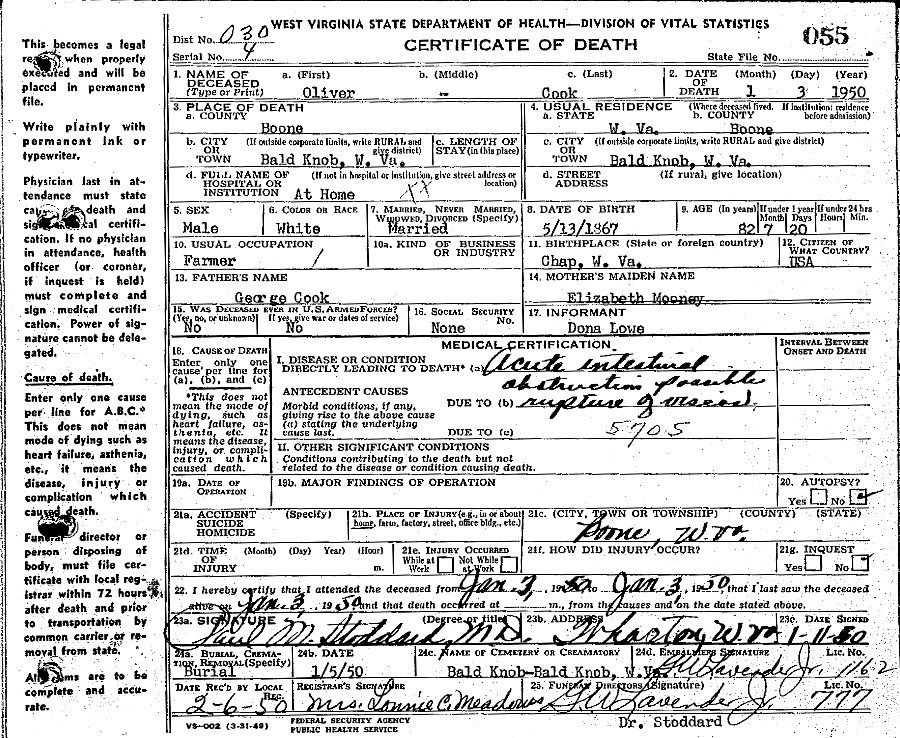 WEST VIRGINIA STATE DEPARTMENT OF HEALTH—DIVISION OF VITAL STATISTICS
Dist No. 030
CERTIFICATE OF DEATH
055
Serial No. 4
State File No.
This becomes a legal
when properly
executed and will be
placed in permanent
file.
Write plainly with
permanent ink or
typewriter.
Physician last in at-
tendance must state
death and
certifi-
cation. If no physician
in attendance, health
officer (or coroner,
if inquest is held)
must complete and
sign medical certifi-
cation. Power of sig-
nature cannot be dele-
gated.
Cause of death.
Enter only one cause
per line for A.B.C.*
This does not mean
mode of dying such as
heart failure, asthenia,
etc., it means the
disease, injury or
complication which
caused death.
Funeral director or
person disposing of
body, must file cer-
tificate with local reg-
istrar within 72 hours
after death and prior
to transportation by
common carrier or re-
moval from state.
All items are to be
complete and accu-
rate.
1. NAME OF DECEASED (Type or Print)
a. (First) Oliver
b. (Middle) -
c. (Last) Cook
2. DATE OF DEATH (Month) (Day) (Year)
1 3 1950
3. PLACE OF DEATH
a. COUNTY
Boone
4. USUAL RESIDENCE (Where deceased lived. If institution: residence before admission)
a. STATE b. COUNTY
W. Va. Boone
b. CITY OR TOWN (If outside corporate limits, write RURAL and give district)
Bald Knob, W. Va.
c. LENGTH OF STAY (in this place)
c. CITY OR TOWN (If outside corporate limits, write RURAL and give district)
Bald Knob, W. Va.
d. FULL NAME OF HOSPITAL OR INSTITUTION (If not in hospital or institution, give street address or location)
At Home
XX
d. STREET ADDRESS (If rural, give location)
5. SEX
Male
6. COLOR OR RACE
White
7. MARRIED, NEVER MARRIED, WIDOWED, DIVORCED (Specify)
Married
8. DATE OF BIRTH
5/13/1867
9. AGE (In years) If under 1 year Month Days If under 24 hrs Hours Min.
82 7 20
10. USUAL OCCUPATION
Farmer /
10a. KIND OF BUSINESS OR INDUSTRY
11. BIRTHPLACE (State or foreign country)
Chap, W. Va.
12. CITIZEN OF WHAT COUNTRY?
USA
13. FATHER'S NAME
George Cook
14. MOTHER'S MAIDEN NAME
Elizabeth Mooney
15. WAS DECEASED EVER IN U.S. ARMED FORCES?
(Yes, no, or unknown) If yes, give war or dates of service)
No No
16. SOCIAL SECURITY No.
None
17. INFORMANT
Dona Lowe
18. CAUSE OF DEATH
Enter only one cause per line for (a), (b), and (c)
*This does not mean the mode of dying, such as heart failure, as-thenia, etc. It means the disease, injury, or compli-cation which caused death.
MEDICAL CERTIFICATION
INTERVAL BETWEEN ONSET AND DEATH
I. DISEASE OR CONDITION DIRECTLY LEADING TO DEATH* (a) Acute intestinal
obstruction possible
ANTECEDENT CAUSES
DUE TO (b) rupture of viscod.
Morbid conditions, if any, giving rise to the above cause (a) stating the underlying cause last.
DUE TO (c) 5705
II. OTHER SIGNIFICANT CONDITIONS
Conditions contributing to the death but not
related to the disease or condition causing death.
19a. DATE OF OPERATION
19b. MAJOR FINDINGS OF OPERATION
20. AUTOPSY?
Yes No
21a. ACCIDENT SUICIDE HOMICIDE (Specify)
21b. PLACE OF INJURY (e.g., in or about home, farm, factory, street, office bldg., etc.)
21c. (CITY, TOWN OR TOWNSHIP) (COUNTY) (STATE)
Boone, W. Va.
21d. TIME OF INJURY (Month) (Day) Year) (Hour) m.
21e. INJURY OCCURRED
While at Work Not While at Work
21f. HOW DID INJURY OCCUR?
21g. INQUEST
Yes No
22. I hereby certify that I attended the deceased from Jan. 3, 1950 to Jan. 3 1950, that I last saw the deceased
alive on Jan. 3 1950 and that death occurred at m., from the causes and on the date stated above.
23a. SIGNATURE (Degree or title)
Paul M. Stoddard, M.D.
23b. ADDRESS
Wharton, W. Va
23c. DATE SIGNED
1-11-50
24a. BURIAL, CREMA-TION, REMOVAL (Specify)
Burial
24b. DATE
1/5/50
24c. NAME OF CEMETERY OR CREAMATORY
Bald Knob-Bald Knob, W.Va
24d. EMBALMERS SIGNATURE LIC. NO.
Lavender Jr. 1162
DATE REC'D BY LOCAL REG.
2-6-50
REGISTRAR'S SIGNATURE
Mrs. Lonnie C. Meadows
25. FUNERAL DIRECTORS (Signature) LIC. NO.
Lavender Jr. 777
VS-002 (3-31-49)
FEDERAL SECURITY AGENCY
PUBLIC HEALTH SERVICE
Dr. Stoddard